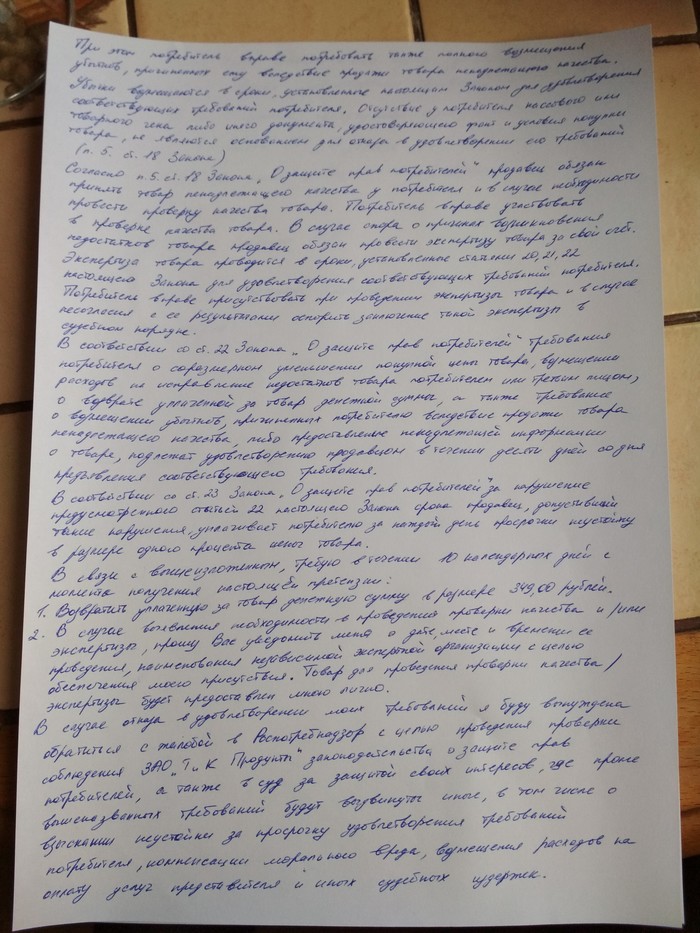 При этом потребитель вправе потребовать также полного возмещения
убытков, причиненных ему вследствие продажи товара ненадлежащего качества.
Убытки возмещаются в сроки, установленные настоящим Законом для удовлетворения
соответствующих требований потребителя. Отсутствие у потребителя кассового или
товарного чека либо иного документа, удостоверяющего факт и условия покупки
товара, не является основанием для отказа в удовлетворении его требований
(п. 5. ст. 18 Закона)
Согласно п.5. ст. 18 Закона „О защите прав потребителей" продавец обязан
принять товар ненадлежащего качества у потребителя и в случае необходимости
провести проверку качества товара. Потребитель вправе участвовать
в проверке качества товара. В случае спора о причинах возникновения
недостатков товара продавец обязан провести экспертизу товара за свой счет.
Экспертиза товара проводится в сроки, установленные статьями 20, 21, 22
настоящего Закона для удовлетворения соответствующих требований потребителя.
Потребитель вправе присутствовать при проведении экспертизы товара и в случае
несогласия с ее результатами оспорить заключение такой экспертизы в
судебном порядке.
В соответствии со ст. 22 Закона „О защите прав потребителей" требования
потребителя о соразмерном уменьшении покупной цены товара, возмещении
расходов на исправление недостатков товара потребителем или третьим лицом,
о возврате уплаченной за товар денежной суммы, а также требование
о возмещении убытков, причиненных потребителю вследствие продажи товара
ненадлежащего качества, либо предоставления ненадлежащей информации
о товаре, подлежат удовлетворению продавцом в течении десяти дней со дня
предъявления соответствующего требования.
В соответствии со ст. 23 Закона „О защите прав потребителей" за нарушение
предусмотренного статьей 22 настоящего Закона срока продавец, допустивший
такие нарушения, уплачивает потребителю за каждый день просрочки неустойку
в размере одного процента цены товара.
В связи с вышеизложенным, требую в течении 10 календарных дней с
момента получения настоящей претензии:
1. Возвратить уплаченную за товар денежную сумму в размере 349,00 рублей.
2. В случае выявления необходимости в проведении проверки качества и/или
экспертизы, прошу Вас уведомить меня о дате, месте и времени ее
проведения, наименования независимой экспертной организации с целью
обеспечения моего присутствия. Товар для проведения проверки качества/
экспертизы будет предоставлен мною лично.
В случае отказа в удовлетворении моих требований я буду вынуждена
обратиться с жалобой в Роспотребнадзор с целью проведения проверки
соблюдения ЗАО „Т и К Продукты" законодательства о защите прав
потребителей, а также в суд за защитой своих интересов, где кроме
вышеназванных требований будут выдвинуты иные, в том числе о
взыскании неустойки за просрочку удовлетворения требований
потребителя, компенсации морального вреда, возмещения расходов на
оплату услуг представителя и иных судебных издержек.